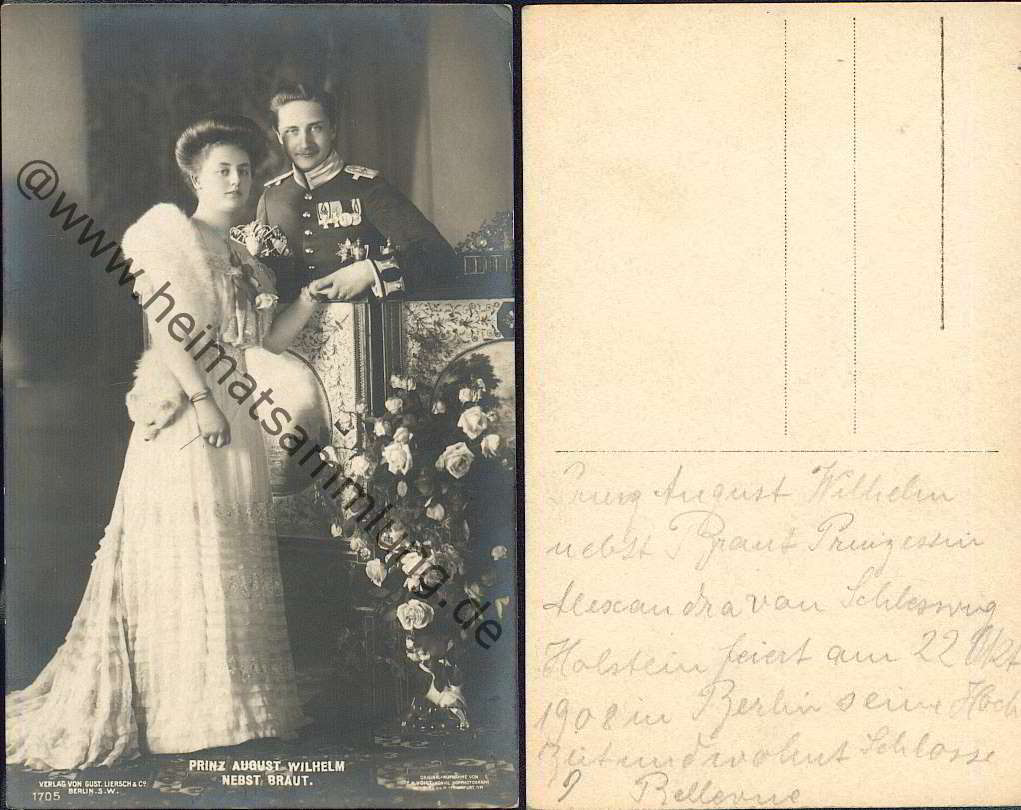 @www.heimatsammlung.de
PRINZ AUGUST WILHELM
NEBST BRAUT.
VERLAG VON GUST. LIERSCH & Co.
BERLIN S.W.
1705
ORIGINAL-AUFNAHME VON
FRANKFURT
Prinz August Wilhelm
nebst Braut Prinzessin
Alexandra von Schleswig
Holstein feiert am 22 Okt
1908 in Berlin seine Hoch
Zeit und wohnt Schlosse
Bellevue